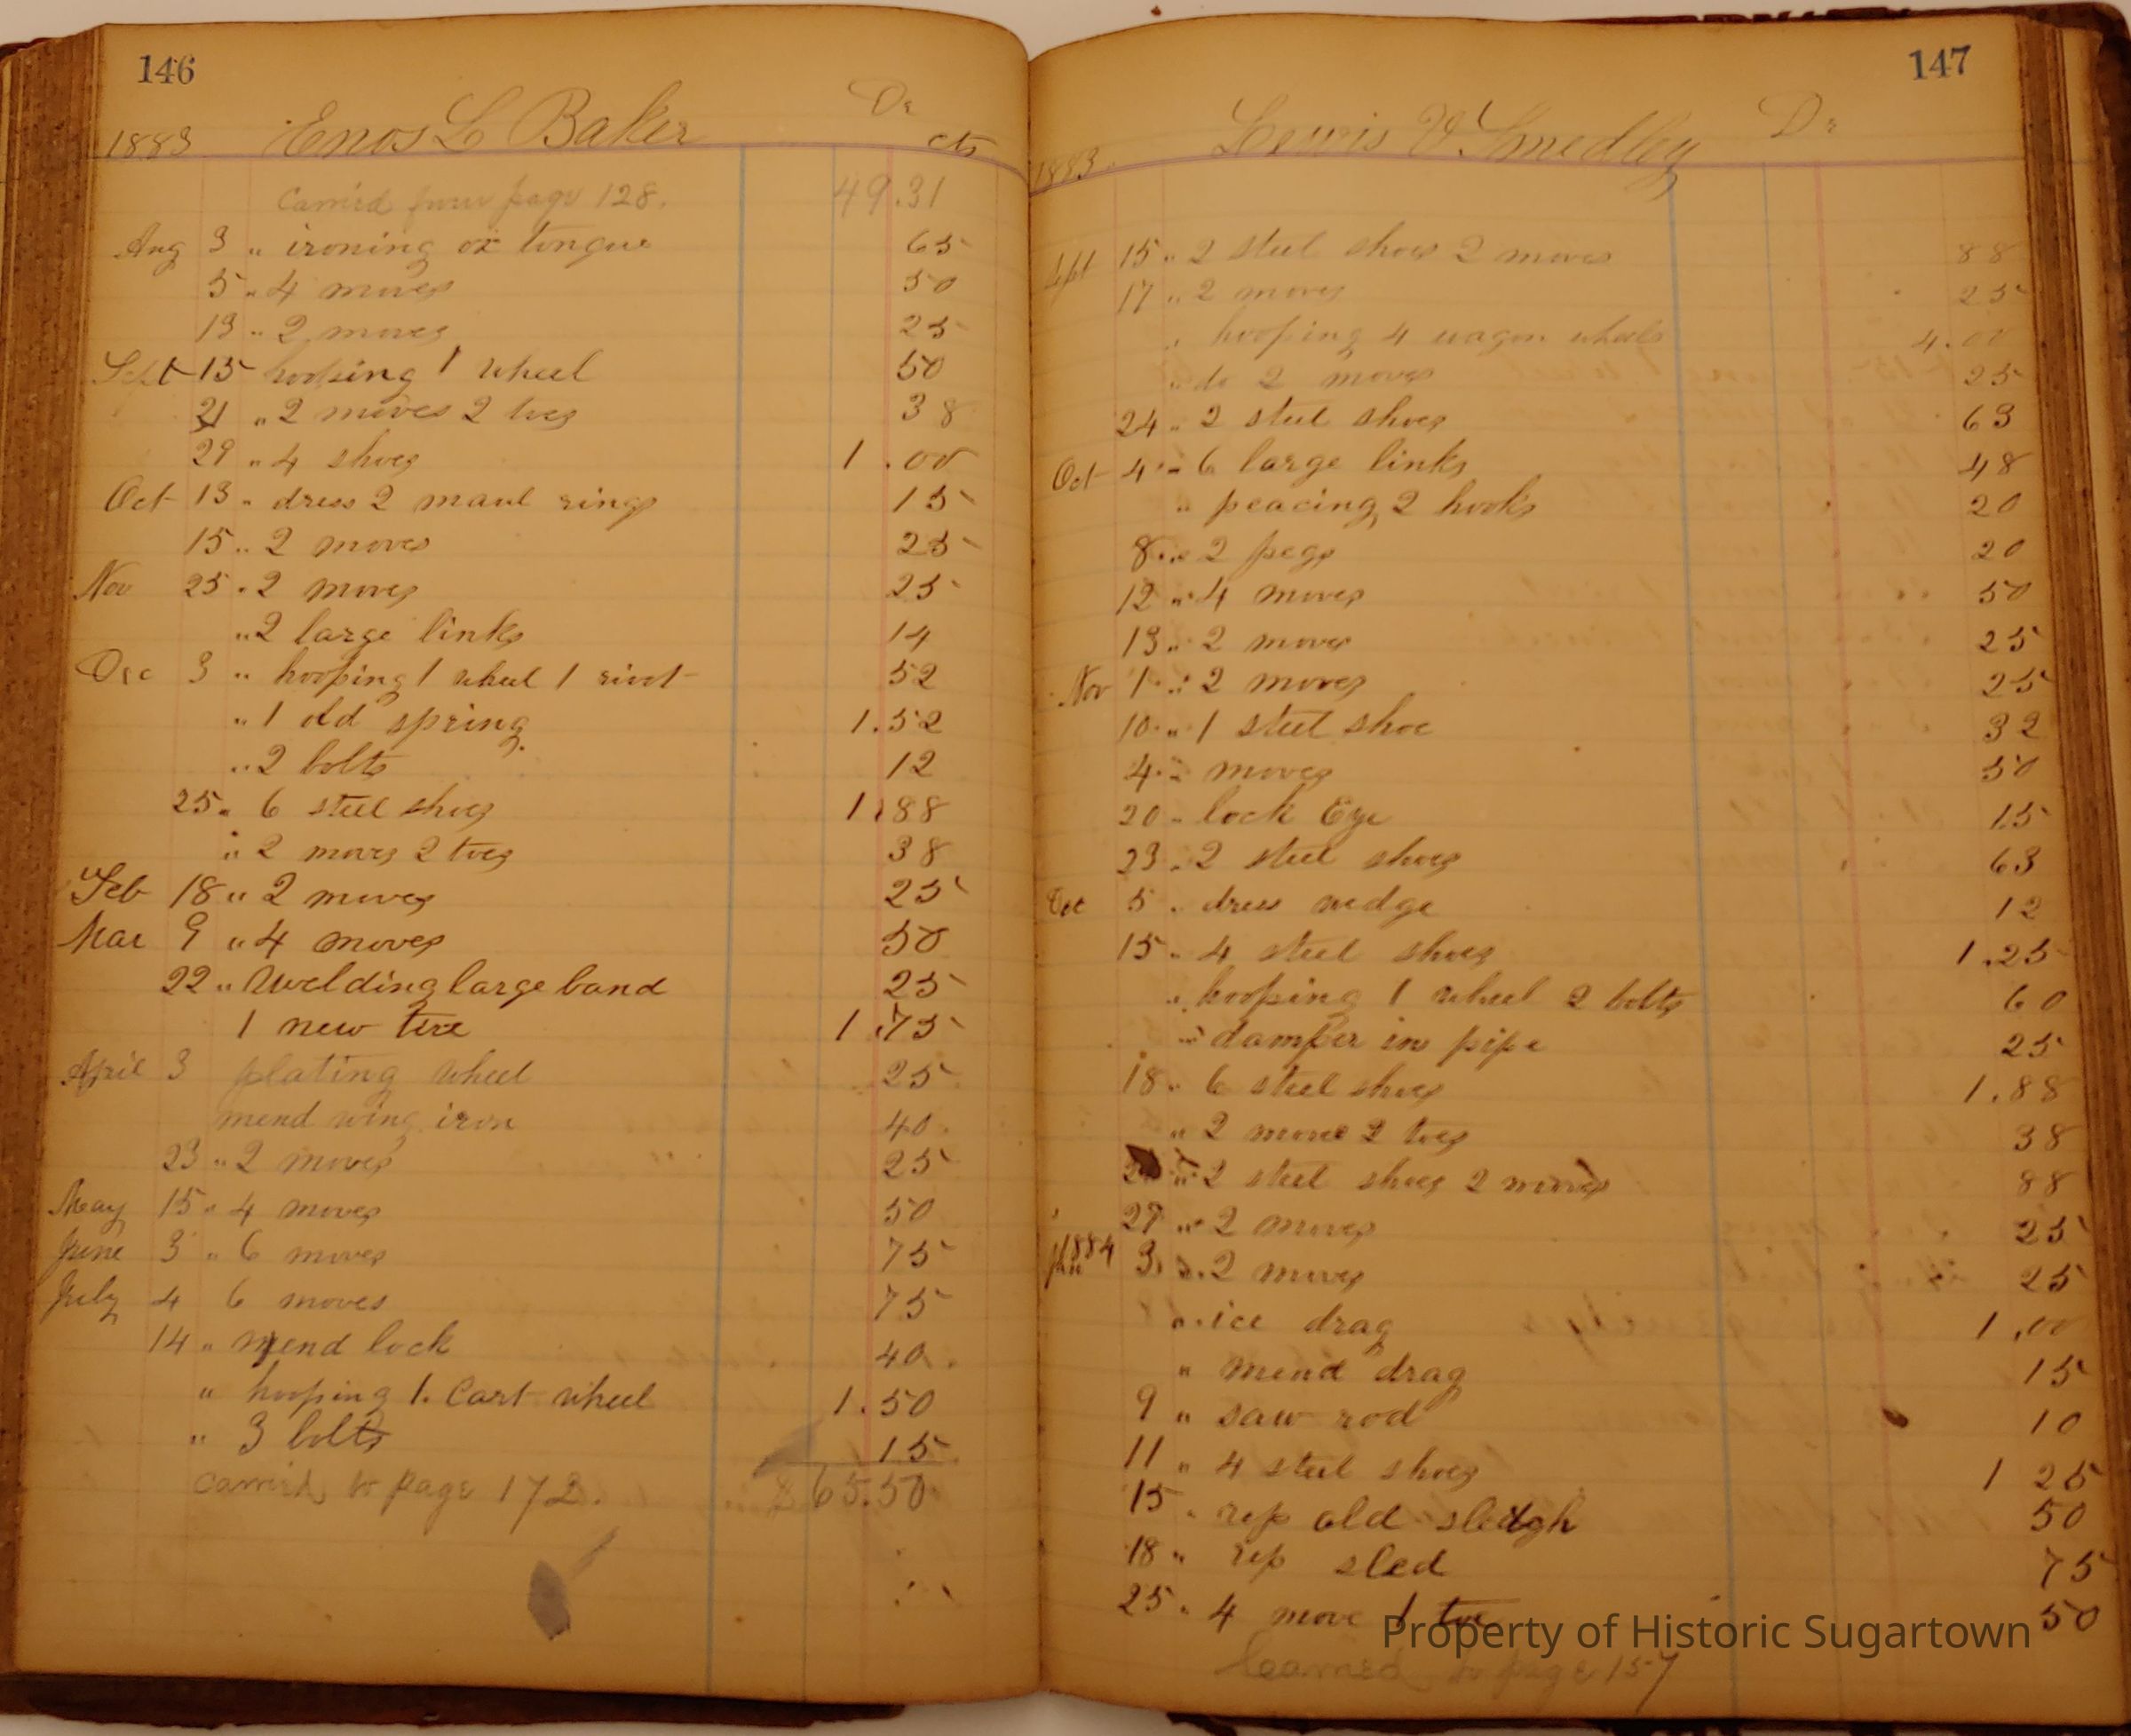 146
Enos L Baker Dr
1883 cts
Carried from page 128. 49.31
Aug 3 " ironing ox tongue 65
5 " 4 moves 50
13 " 2 moves 25
Sept 15 hooping 1 wheel 50
21 " 2 moves 2 toes 38
29 " 4 shoes 1.00
Oct 13 " dress 2 maul rings 15
15 " 2 moves 25
Nov 25 " 2 moves 25
" 2 large links 14
Dec 3 " hooping 1 wheel 1 rivot 52
" 1 old spring 1.52
" 2 bolts 12
25 " 6 steel shoes 1.88
" 2 moves 2 toes 38
Feb 18 " 2 moves 25
Mar 9 " 4 moves 50
22 " Welding large band 25
1 new tire 1.75
April 3 plating wheel 25
mend wing iron 40
23 " 2 moves 25
May 15 " 4 moves 50
June 3 " 6 moves 75
July 4 6 moves 75
14 " mend lock 40
" hooping 1 Cart wheel 1.50
" 3 bolts 15
Carried to page 172. $65.50
147
Lewis Smedley Dr
1883
Sept 15 " 2 steel shoes 2 moves 88
17 " 2 moves 25
" hooping 4 wagon wheels 4.00
" do 2 moves 25
24 " 2 steel shoes 63
Oct 4 " 6 large links 48
" peacing 2 hooks 20
8 " 2 pegs 20
12 " 4 moves 50
13 " 2 moves 25
Nov 1 " 2 moves 25
10 " 1 steel shoe 32
4 " moves 50
20 " lock Eye 15
23 " 2 steel shoes 63
Dec 5 " dress wedge 12
15 " 4 steel shoes 1.25
" hooping 1 wheel 2 bolts 60
" damper in pipe 25
18 " 6 steel shoes 1.88
" 2 move 2 toes 38
" 2 steel shoes 2 moves 88
27 " 2 moves 25
1884
Jan 3 " 2 moves 25
" ice drag 1.00
" mend drag 15
9 " saw rod 10
11 " 4 steel shoes 1 25
15 " rep old sleigh 50
18 " rep sled 75
25 " 4 move 1 toe 50
Carried to page 157
Property of Historic Sugartown